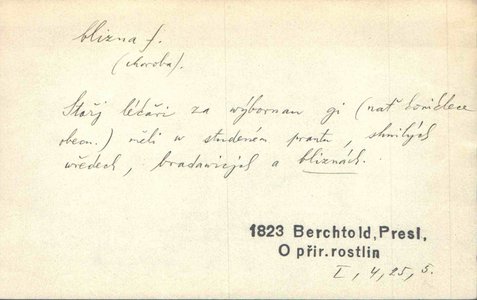 blizna f.
(choroba).
Stařj lékaři za výbornau gi (nať konitlece
obecn.) měli w studeném prantu, shnilých
wředech, bradawicých a bliznách.
1823 Berchtold, Presl,
O přir. rostlin
I, 4, 25, 5.